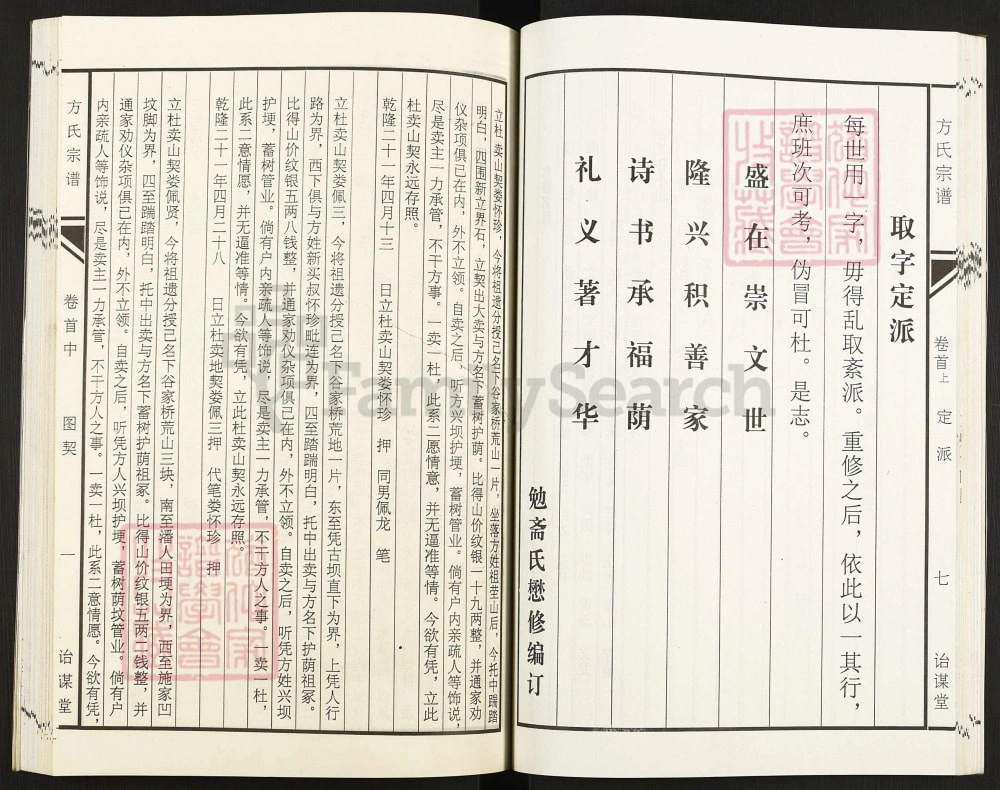 方氏宗谱
卷首上
定派
七
诒谋堂
取字定派
每世用一字，毋得乱取紊派。重修之后，依此以一其行，
庶班次可考，伪冒可杜。是志。
盛在崇文世
隆兴积善家
诗书承福荫
礼义著才华
勉斋氏懋修编订
立杜卖山契娄怀珍，今将祖遗分授己名下谷家桥荒山一片，坐落方姓祖茔山后，今托中踹踏
明白，四围新立界石，立契出大卖与方名下蓄树护荫。比得山价纹银一十九两整，并通家劝
仪杂项俱已在内，外不立领。自卖之后，听方兴坝护埂，蓄树管业。倘有户内亲疏人等饰说，
尽是卖主一力承管，不干方事。一卖一杜，此系二愿情意，并无逼准等情。今欲有凭，立此
杜卖山契永远存照。
乾隆二十一年四月十三 日立杜卖山契娄怀珍 押 同男佩龙 笔
立杜卖山契娄佩三，今将祖遗分授己名下谷家桥荒地一片，东至凭古坝直下为界，上凭人行
路为界，西下俱与方姓新买叔怀珍毗连为界，四至踏踹明白，托中出卖与方名下护荫祖冢。
比得山价纹银五两八钱整，并通家劝仪杂项俱已在内，外不立领。自卖之后，听凭方姓兴坝
护埂，蓄树管业。倘有户内亲疏人等饰说，尽是卖主一力承管，不干方人之事。一卖一杜，
此系二意情愿，并无逼准等情。今欲有凭，立此杜卖山契永远存照。
乾隆二十一年四月二十八 日立杜卖地契娄佩三押 代笔娄怀珍 押
立杜卖山契娄佩贤，今将祖遗分授己名下谷家桥荒山三块，南至潘人田埂为界，西至施家凹
坟脚为界，四至踹踏明白，托中出卖与方名下蓄树护荫祖冢。比得山价纹银五两二钱整，并
通家劝仪杂项俱已在内，外不立领。自卖之后，听凭方人兴坝护埂，蓄树荫坟管业。倘有户
内亲疏人等饰说，尽是卖主一力承管，不干方人之事。一卖一杜，此系二意情愿。今欲有凭，
方氏宗谱
卷首中
图契
一
诒谋堂
FamilySearch